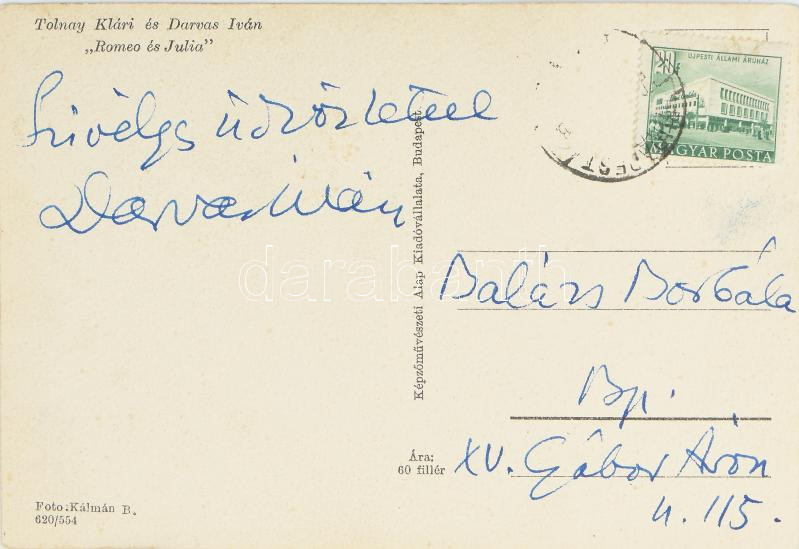 Tolnay Klári és Darvas Iván
„Romeo és Julia”
Szívélyes üdvözlettel
Darvas Iván
Képzőművészeti Alap Kiadóvállalata, Budapest
ÚJPESTI ÁLLAMI ÁRUHÁZ
MAGYAR POSTA
darabanth
Balázs Borbála
Bp.
XV. Gábor Áron
u. 115.
Ára:
60 fillér
Foto: Kálmán B.
620/554